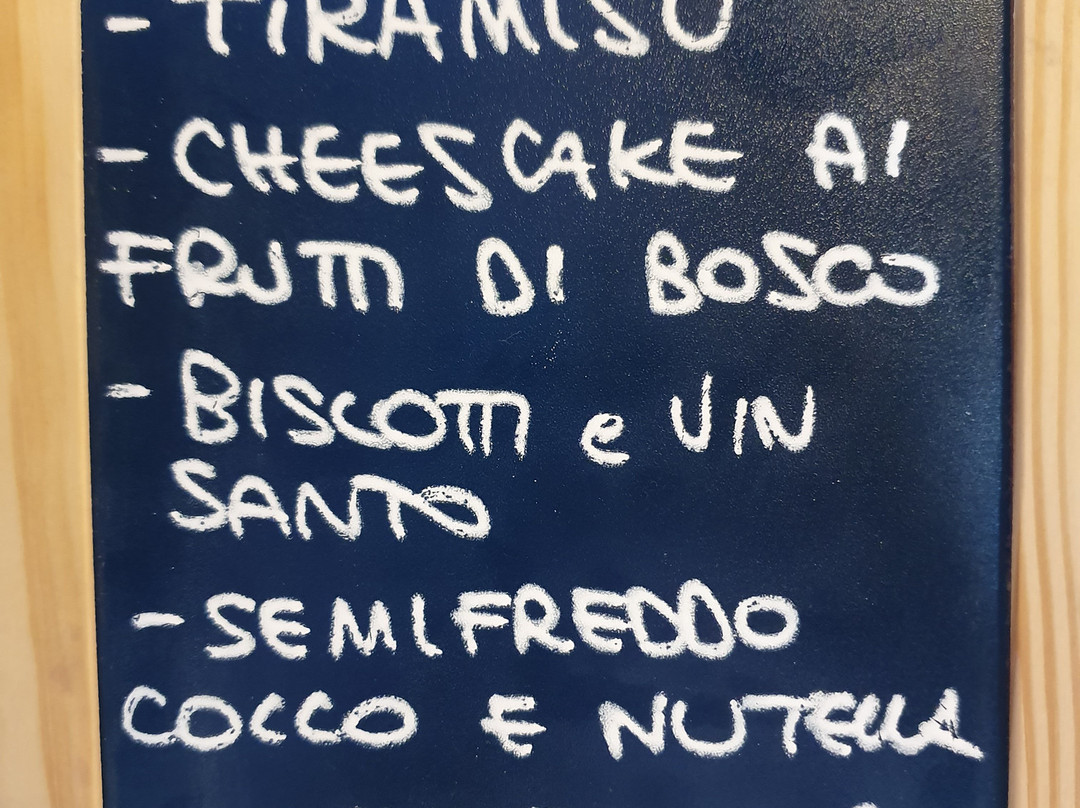 - TIRAMISU
- CHEESECAKE AI
FRUTTI DI BOSCO
- BISCOTTI e VIN
SANTO
- SEMIFREDDO
COCCO E NUTELLA